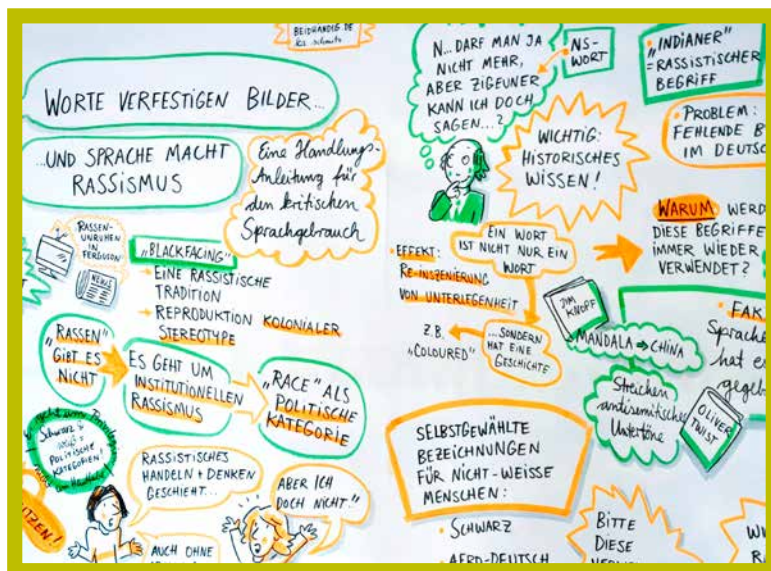 BEIDHÄNDIG.DE
WORTE VERFESTIGEN BILDER...
...UND SPRACHE MACHT
RASSISMUS
Eine Handlungs-
Anleitung für
den kritischen
Sprachgebrauch
RASSEN-
UNRUHEN
IN
FERGUSON
NEWS
„BLACKFACING"
→ EINE RASSISTISCHE
TRADITION
→ REPRODUKTION KOLONIALER
STEREOTYPE
„RASSEN"
GIBT ES
NICHT
ES GEHT UM
INSTITUTIONELLEN
RASSISMUS
„RACE" ALS
POLITISCHE
KATEGORIE
Schwarz &
weiß =
POLITISCHE
KATEGORIEN!
RASSISTISCHES
HANDELN + DENKEN
GESCHIEHT...
AUCH OHNE
ABER ICH
DOCH NICHT."
N... DARF MAN JA
NICHT MEHR,
ABER ZIGEUNER
KANN ICH DOCH
SAGEN...?
NS-
WORT
„INDIANER"
= RASSISTISCHER
BEGRIFF
• PROBLEM:
FEHLENDE B
IM DEUTSC
WICHTIG:
HISTORISCHES
WISSEN!
EIN WORT
IST NICHT NUR EIN
WORT
• EFFEKT:
RE-INSZENIERUNG
VON UNTERLEGENHEIT
...SONDERN
HAT EINE
GESCHICHTE
Z.B.
"COLOURED"
WARUM WERD
DIESE BEGRIFFE
IMMER WIEDER
VERWENDET?
JIM
KNOPF
MANDALA ⇒ CHINA
Streichen
antisemitischer
Untertöne
OLIVER
TWIST
• FAK
Sprache
hat es
gegeb
SELBSTGEWÄHLTE
BEZEICHNUNGEN
FÜR NICHT-WEISSE
MENSCHEN:
• SCHWARZ
AFRO-DEUTSCH
BITTE
DIESE